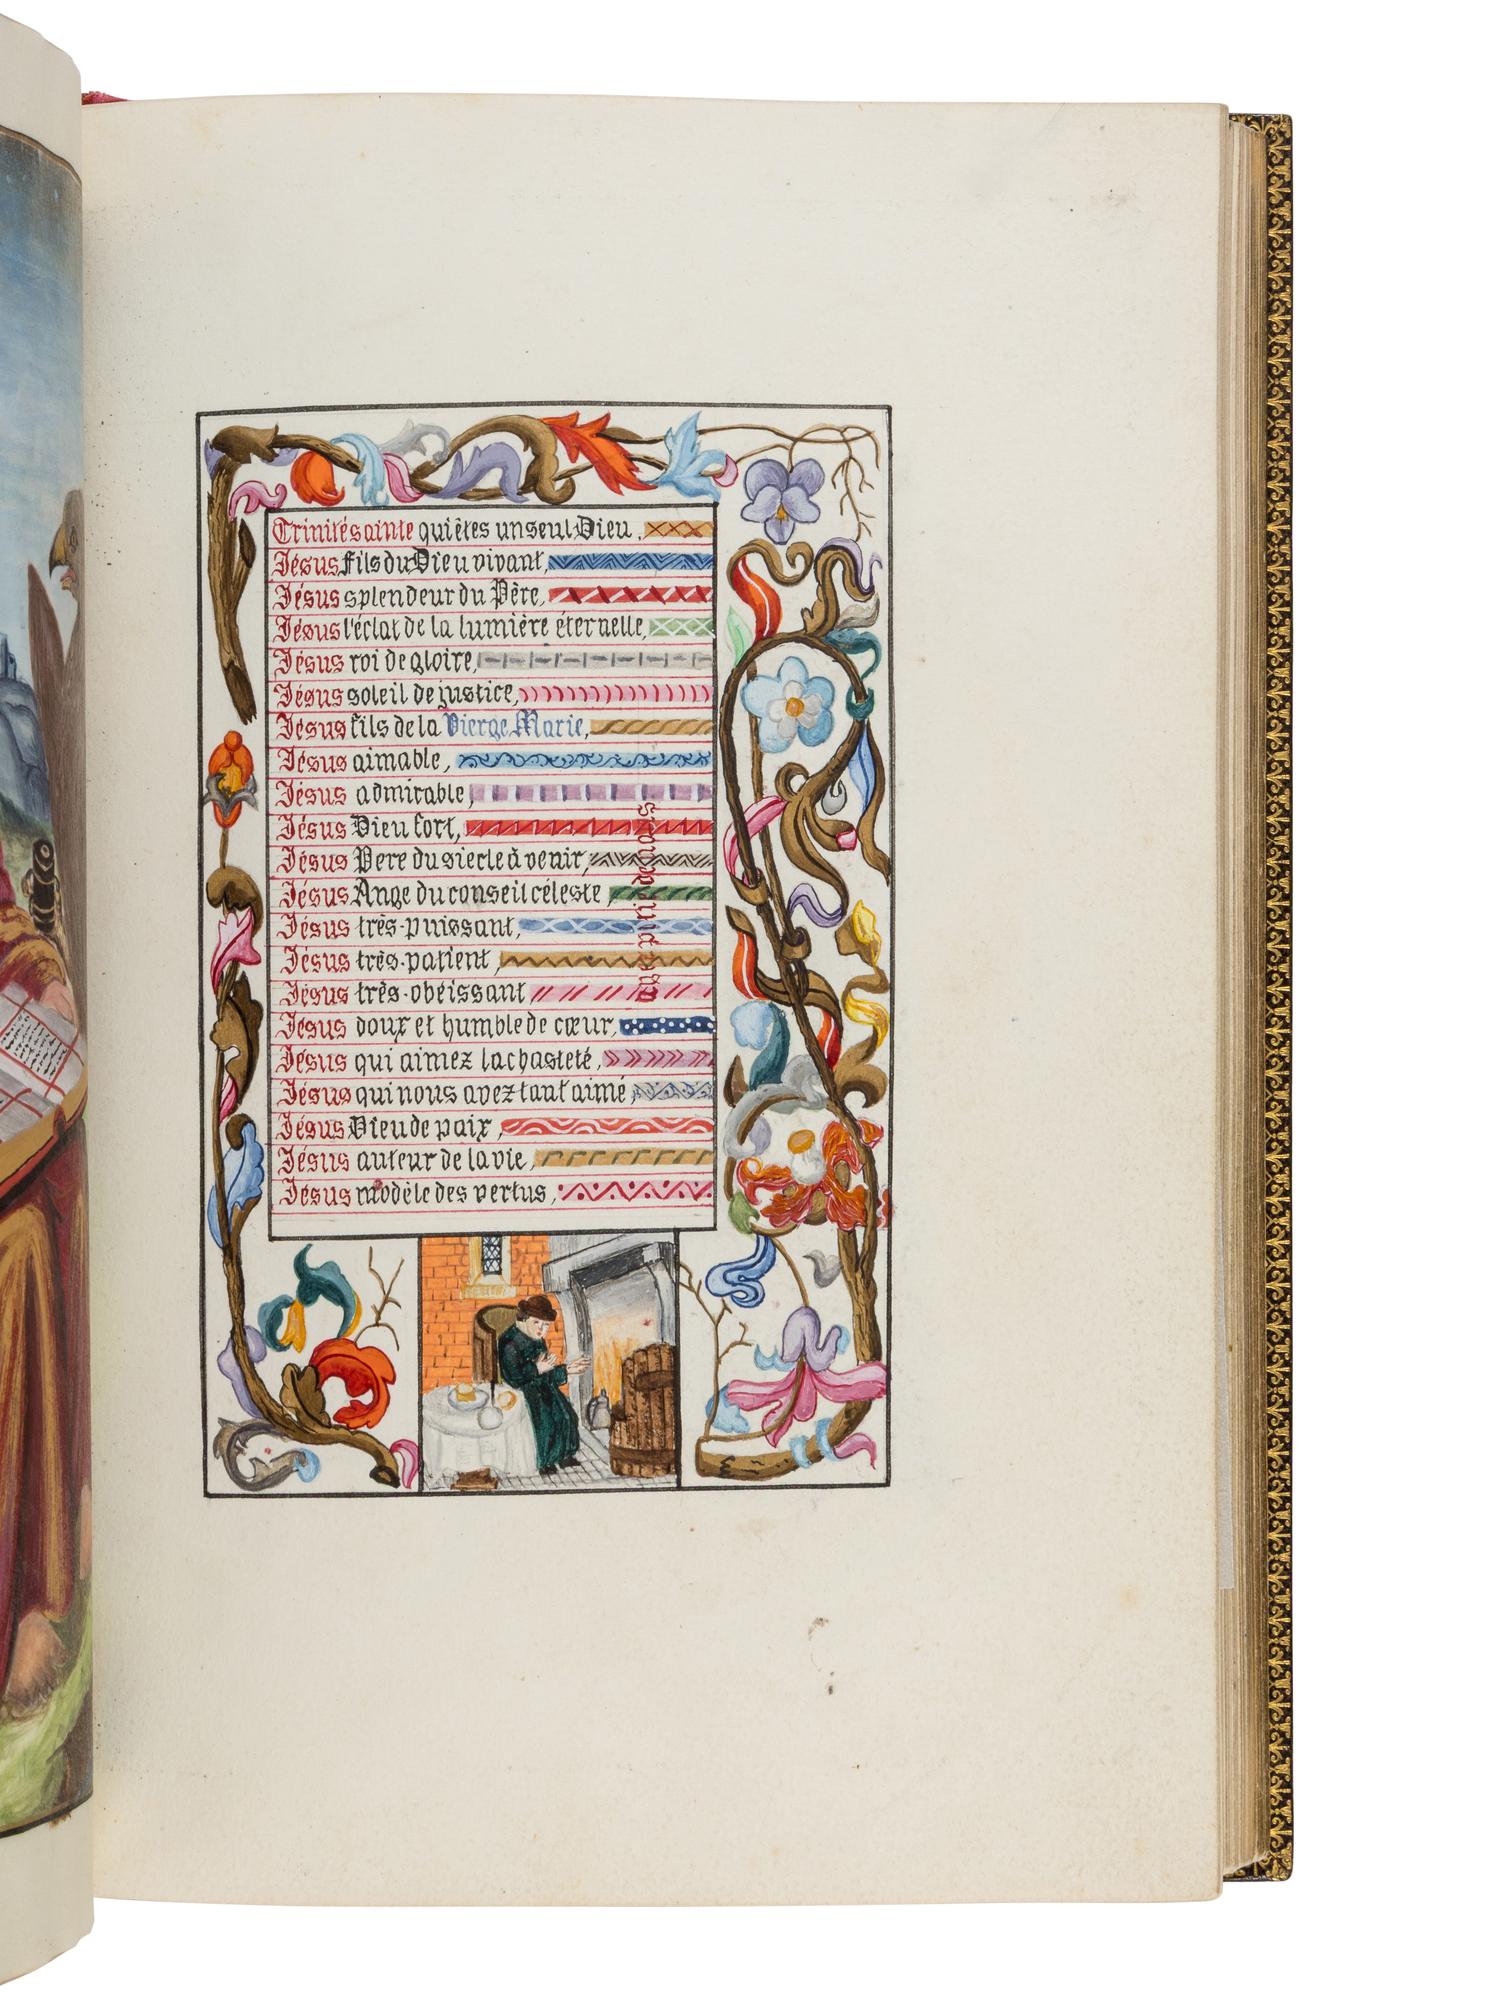 Trinité sainte qui êtes un seul Dieu,
Jésus fils du Dieu vivant,
Jésus splendeur du Père,
Jésus l'éclat de la lumière éternelle,
Jésus roi de gloire,
Jésus soleil de justice,
Jésus fils de la Vierge Marie,
Jésus aimable,
Jésus admirable,
Jésus Dieu fort,
Jésus Pere du siecle à venir,
Jésus Ange du conseil céleste,
Jésus très-puissant,
Jésus très-patient,
Jésus très-obéissant
Jésus doux et humble de cœur,
Jésus qui aimez la chasteté,
Jésus qui nous avez tant aimé,
Jésus Dieu de paix,
Jésus auteur de la vie,
Jésus modèle des vertus,
ayez pitié de nous